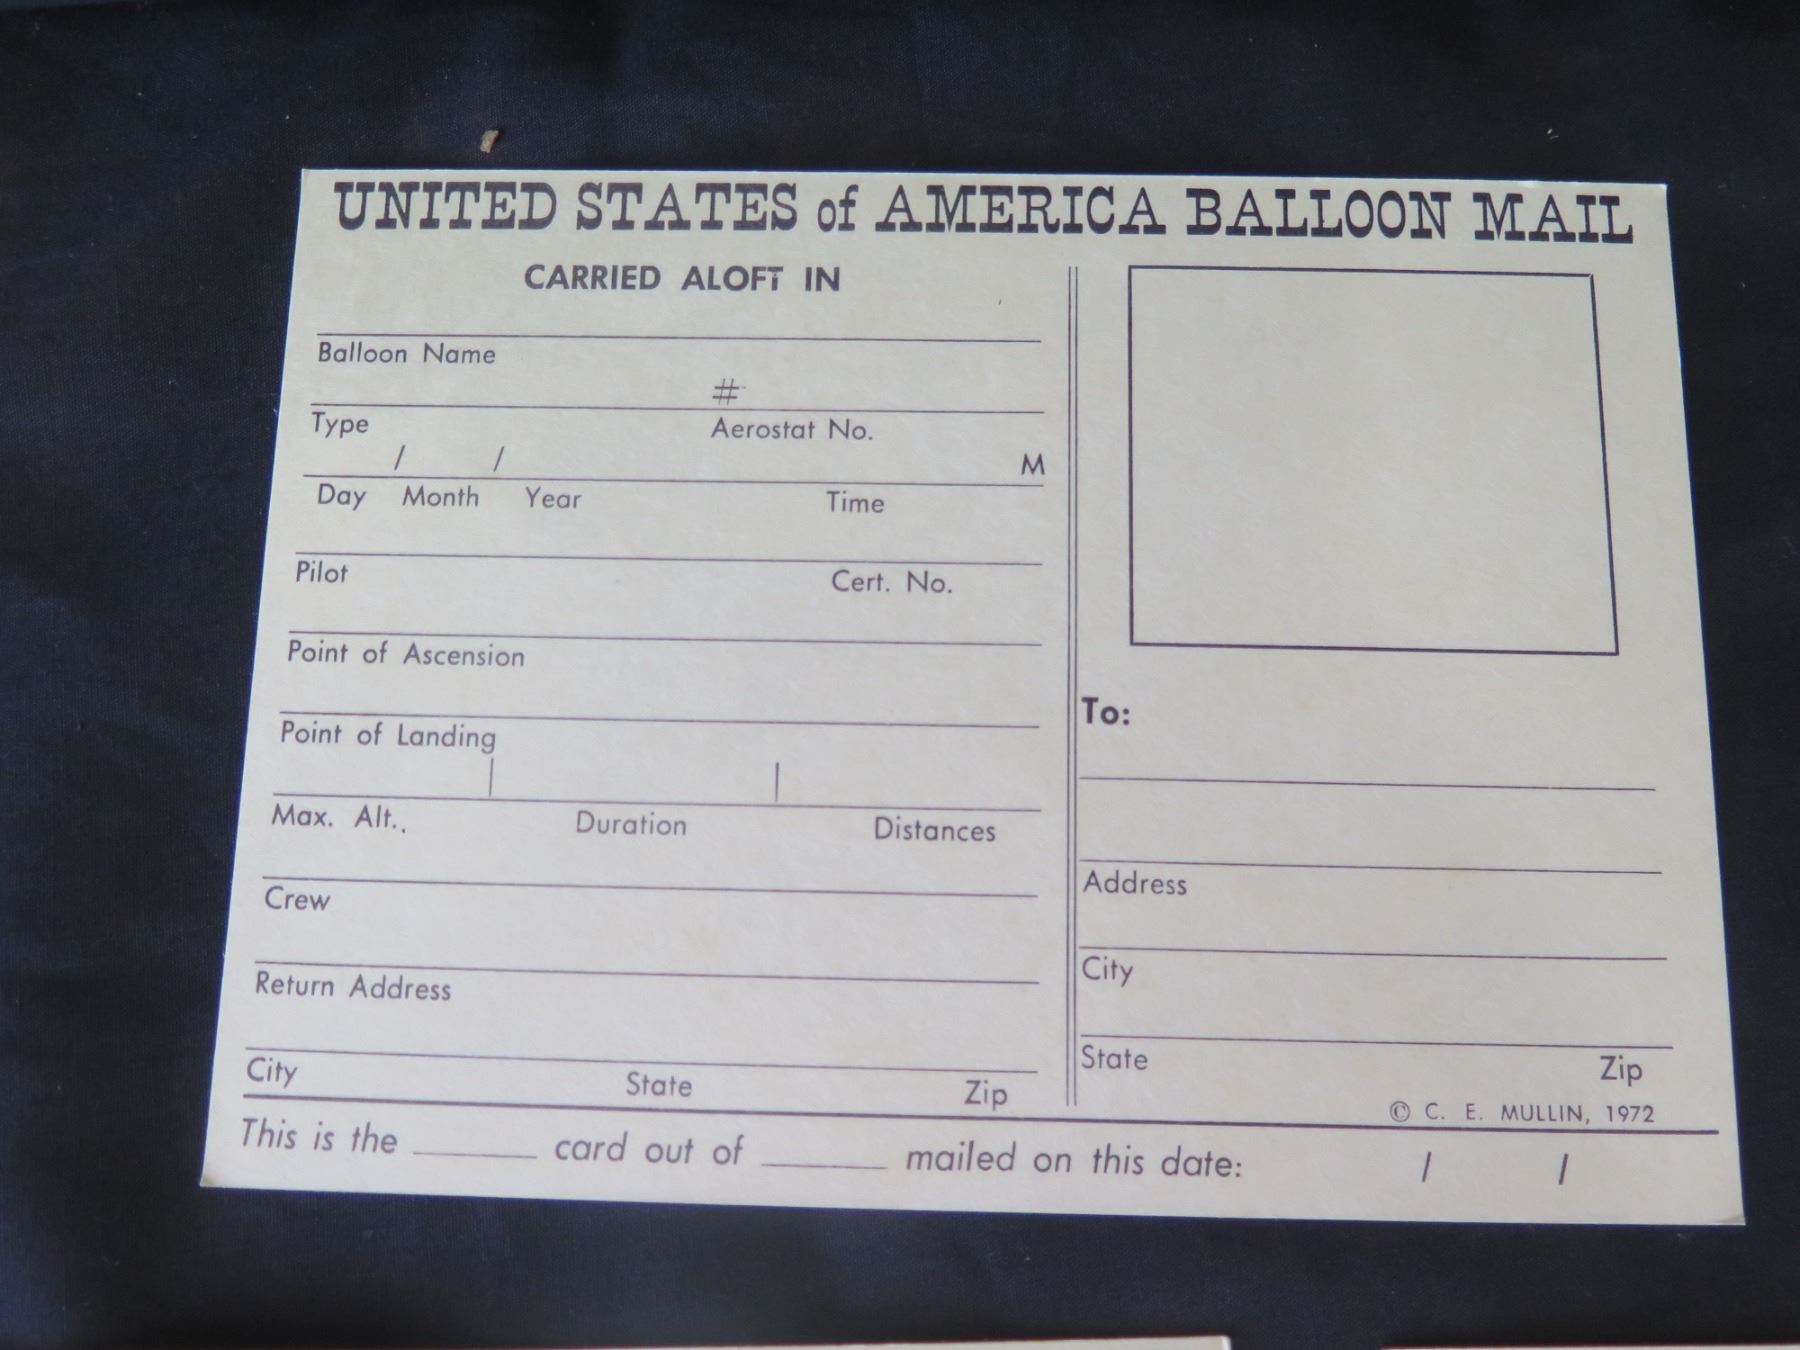 UNITED STATES of AMERICA BALLOON MAIL
CARRIED ALOFT IN
Balloon Name
#
Type Aerostat No.
/ / M
Day Month Year Time
Pilot Cert. No.
Point of Ascension
Point of Landing
| |
Max. Alt.. Duration Distances
Crew
Return Address
City State Zip
To:
Address
City
State Zip
© C. E. MULLIN, 1972
This is the ______ card out of ______ mailed on this date: / /